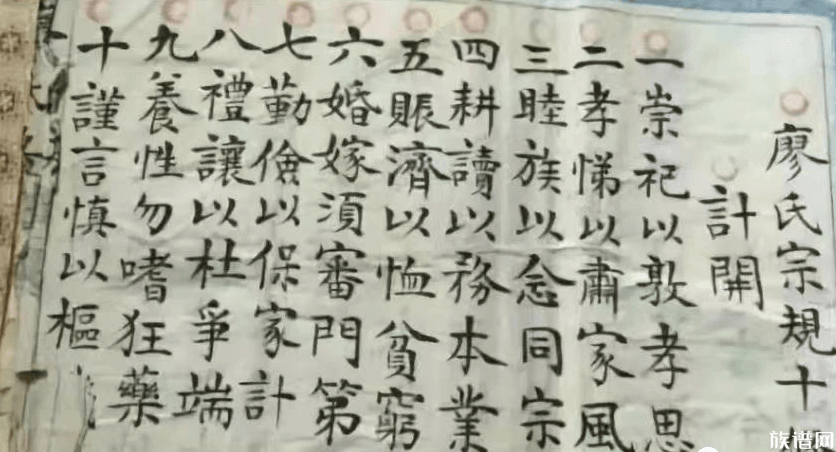 廖氏宗規十
計開
一崇祀以敦孝思
二孝悌以肅家風
三睦族以念同宗
四耕讀以務本業
五賑濟以恤貧窮
六婚嫁須審門第
七勤儉以保家計
八禮讓以杜爭端
九養性勿嗜狂藥
十謹言慎以樞
族谱网